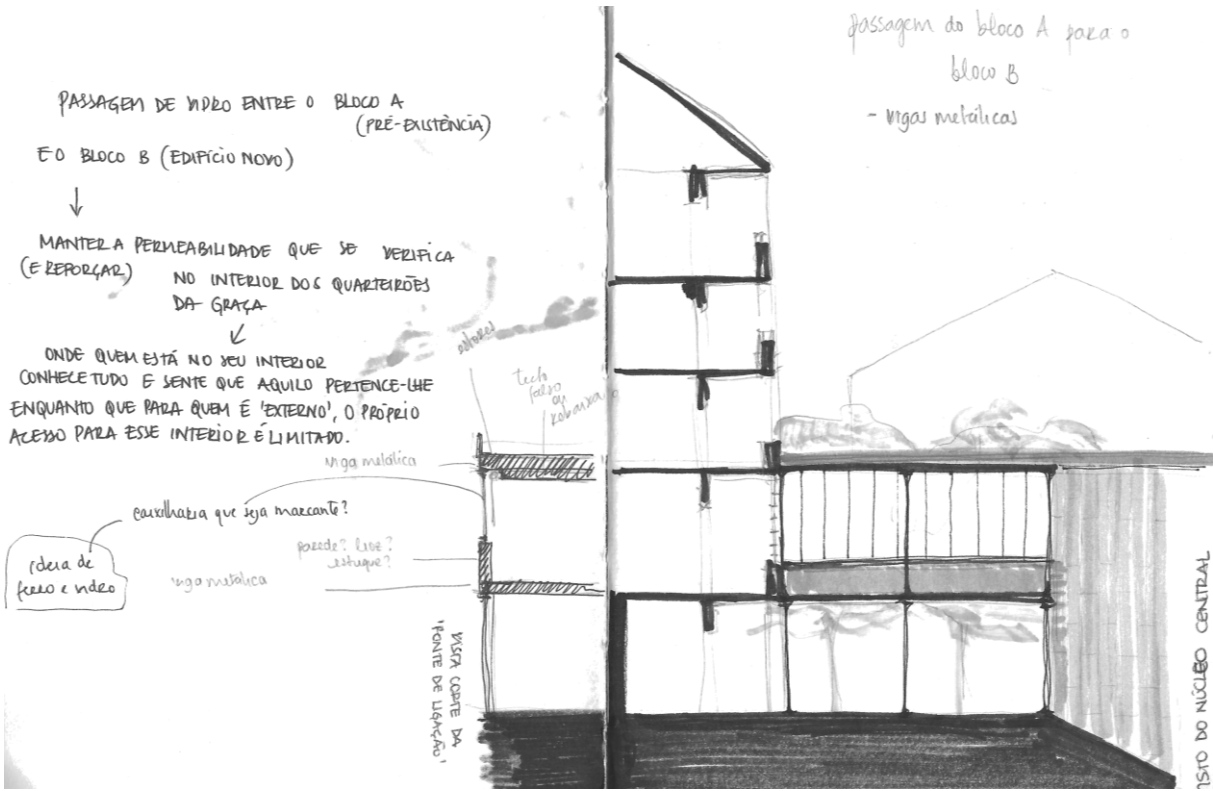 PASSAGEM DE VIDRO ENTRE O BLOCO A
(PRÉ-EXISTÊNCIA)
E O BLOCO B (EDIFÍCIO NOVO)
MANTER A PERMEABILIDADE QUE SE VERIFICA
(E REFORÇAR)
NO INTERIOR DOS QUARTEIRÕES
DA GRAÇA
ONDE QUEM ESTÁ NO SEU INTERIOR
CONHECE TUDO E SENTE QUE AQUILO PERTENCE-LHE
ENQUANTO QUE PARA QUEM É 'EXTERNO', O PRÓPRIO
ACESSO PARA ESSE INTERIOR É LIMITADO.
estores
tecto
falso
ou
viga metálica
caixilharia que seja marcante?
ideia de
ferro e vidro
parede? leve?
estuque?
viga metálica
VISTA CORTE DA
'PONTE DE LIGAÇÃO'
passagem do bloco A para o
bloco B
- vigas metálicas
ISTO DO NÚCLEO CENTRAL